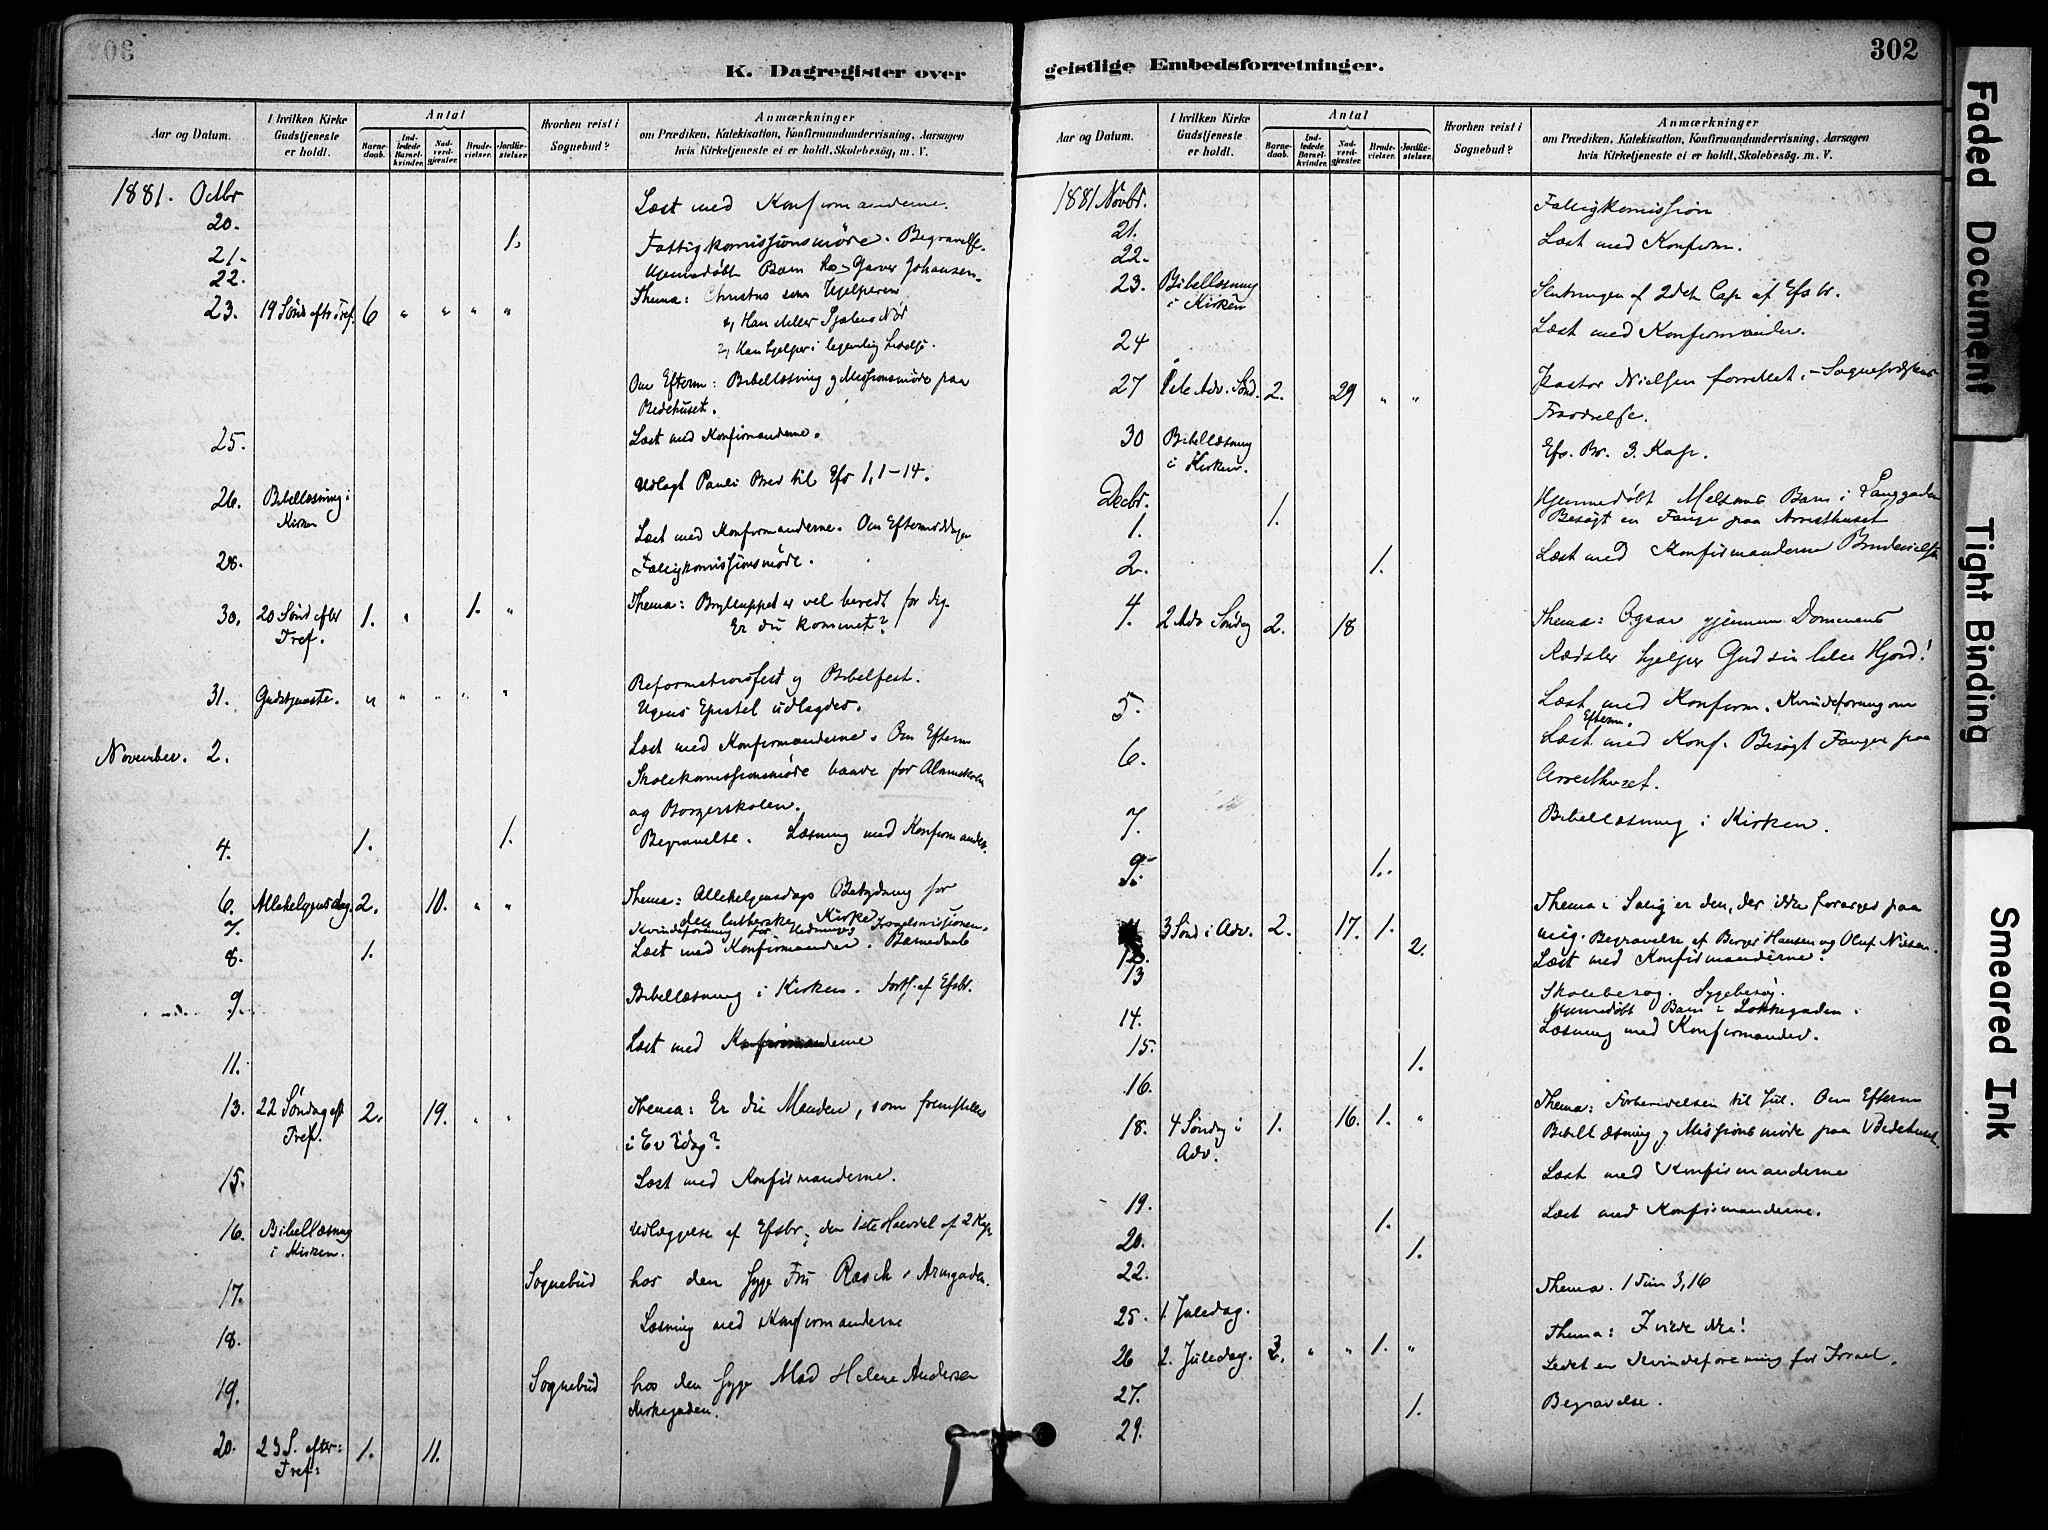 302
K. Dagregister over
Aar og Datum.
I hvilken Kirke Gudstjeneste er holdt.
Antal
Barne- daab.
Ind- ledede Barsel- kvinder.
Nad- verd- gjester.
Brude- vielser.
Jordfæ- stelser.
Hvorhen reist i Sognebud?
Anmærkninger
om Prædiken, Katekisation, Konfirmandundervisning, Aarsagen
hvis Kirketjeneste ei er holdt, Skolebesøg, m. V.
1881. Octbr
20. Læst med Konfirmanderne.
21. 1. Fattigkomissionsmøde. Begravelse.
22. Hjemmedøbt Barn hos Garver Johansen.
23. 19 Sønd eftr Tref. 6 " " " " Thema: Christus som Hjelperen
1, Han Sjælens Nød
2, Han hjelper i legemlig
Om Efterm: Bibellæsning og Missionsmøde paa
Bedehuset.
25. Læst med Konfirmanderne.
26. Bibellæsning i Kirken Udlagt Pauli Brev til Efs 1, 1-14.
28. Læst med Konfirmanderne. Om Eftermiddagen
Fattigkomissionsmøde.
30. 20 Sønd efter Tref. 1. " 1. " Thema: Brylluppet er vel beredt for dig.
Er du kommet?
31. Gudstjeneste. " " " " " Reformationsfest og Bibelfest.
Ugens Epistel udlagdes.
November. 2. Læst med Konfirmanderne. Om Efterm
Skolekomissionsmøde baade for Almueskolen
og Borgerskolen.
4. 1. 1. Begravelse. Læsning med Konfirmander.
6. Allehelgensdag. 2. 10. " " Thema: Allehelgensdags Betydning for
den lutherske Kirke
7. Kvindeforening for Hedninge
8. 1. Læst med Konfirmander. Barnedaab
9. Bibellæsning i Kirken. Forts. af Efsbr.
11. Læst med Konfirmanderne
13. 22 Søndag eft Tref. 2. 19. " " Thema: Er du Manden, som fremstilles
i Ev idag?
15. Læst med Konfirmanderne.
16. Bibellæsning i Kirken. Udlæggelse af Efsbr; den 1ste Halvdel af 2 Kap.
17. Sognebud hos den syge Fru Rasch i
18. Læsning med Konfirmanderne
19. Sognebud hos den syge Mad Helene Andersen
Kirkegaden.
20. 23 S. efter: Tref: 1. 11.
geistlige Embedsforretninger.
Aar og Datum.
I hvilken Kirke Gudstjeneste er holdt.
Antal
Barne- daab.
Ind- ledede Barsel- kvinder.
Nad- verd- gjester.
Brude- vielser.
Jordfæ- stelser.
Hvorhen reist i Sognebud?
Anmærkninger
om Prædiken, Katekisation, Konfirmandundervisning, Aarsagen
hvis Kirketjeneste ei er holdt, Skolebesøg. m. V.
1881 Novbr.
21. Fattigkomission
22. Læst med Konfirm.
23. Bibellæsning i Kirken Slutningen af 2det Cap af Efs br.
24 Læst med Konfirmander.
27 1ste Adv. Sønd. 2. 29 " " Pastor Nielsen forrettet, - Sognepræstens
Fraværelse.
30 Bibellæsning i Kirken. Efs. Br. 3. Kap.
Decbr.
1. 1. Hjemmedøbt Barn i Langgaden
Besøgt en Fange paa Arresthuset
2. 1. Læst med Konfirmanderne Brudevielse
4. 2 Adv Søndag 2. 18 Thema: Ogsaa gjennem Dommens
Rædsler hjelper Gud sin lille Hjord!
5. Læst med Konfirm. Kvindeforening om
Efterm.
6. Læst med Konf. Besøgt Fanger paa
Arresthuset.
7. Bibellæsning i Kirken.
9. 1.
3 Sønd i Adv. 2. 17. 1. Thema: Salig er den, der ikke forarges paa
12. 2. mig. Begravelse af Berger Hansen og Oluf Nilsen.
13 Læst med Konfirmanderne.
Skolebesøg. Sygebesøg.
14. Hjemmedøbt Barn i Løkkegaden.
15. Læsning med Konfirmander.
16. 1.
18. 4 Søndag i Adv. 1. 16. 1. " Thema: Forberedelsen til Jul. Om Efterm
Bibellæsning og Missionsmøde paa Bedehuset.
19. Læst med Konfirmanderne
20. 1. Læst med Konfirmanderne.
22. 1.
25. 1 Juledag. Thema. 1 Tim 3, 16
26 2. Juledag. 3. " " 1. " Thema:
27. Ledet en Kvindeforening for Israel.
29. 1. Begravelse.
Faded Document
Tight Binding
Smeared Ink